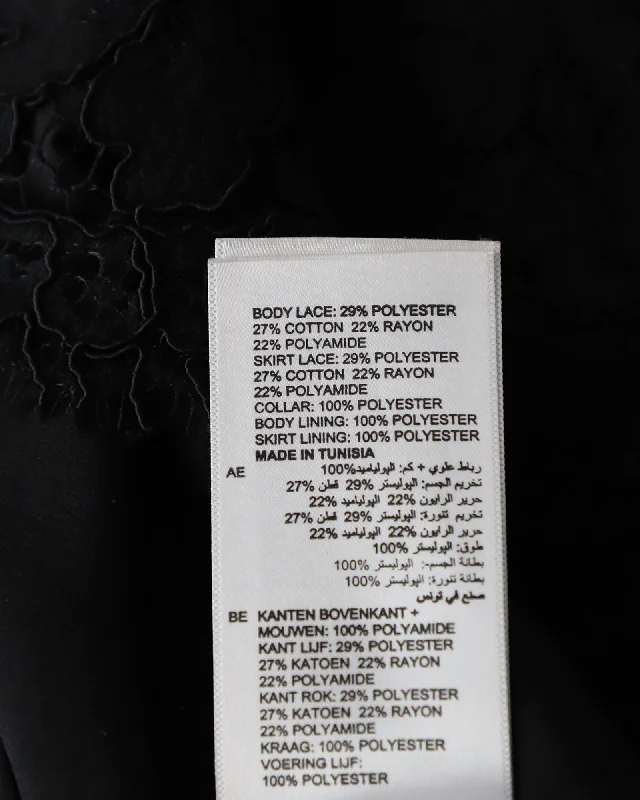 BODY LACE: 29% POLYESTER
27% COTTON 22% RAYON
22% POLYAMIDE
SKIRT LACE: 29% POLYESTER
27% COTTON 22% RAYON
22% POLYAMIDE
COLLAR: 100% POLYESTER
BODY LINING: 100% POLYESTER
SKIRT LINING: 100% POLYESTER
MADE IN TUNISIA
AE رباط علوي + كم: البولياميد100%
تخريم الجسم: البوليستر 29% قطن 27%
حرير الرايون 22% البولياميد 22%
تخريم تنورة: البوليستر 29% قطن 27%
حرير الرايون 22% البولياميد 22%
طوق: البوليستر 100%
بطانة الجسم-: البوليستر 100%
بطانة تنورة: البوليستر 100%
صنع في تونس
BE KANTEN BOVENKANT +
MOUWEN: 100% POLYAMIDE
KANT LIJF: 29% POLYESTER
27% KATOEN 22% RAYON
22% POLYAMIDE
KANT ROK: 29% POLYESTER
27% KATOEN 22% RAYON
22% POLYAMIDE
KRAAG: 100% POLYESTER
VOERING LIJF:
100% POLYESTER